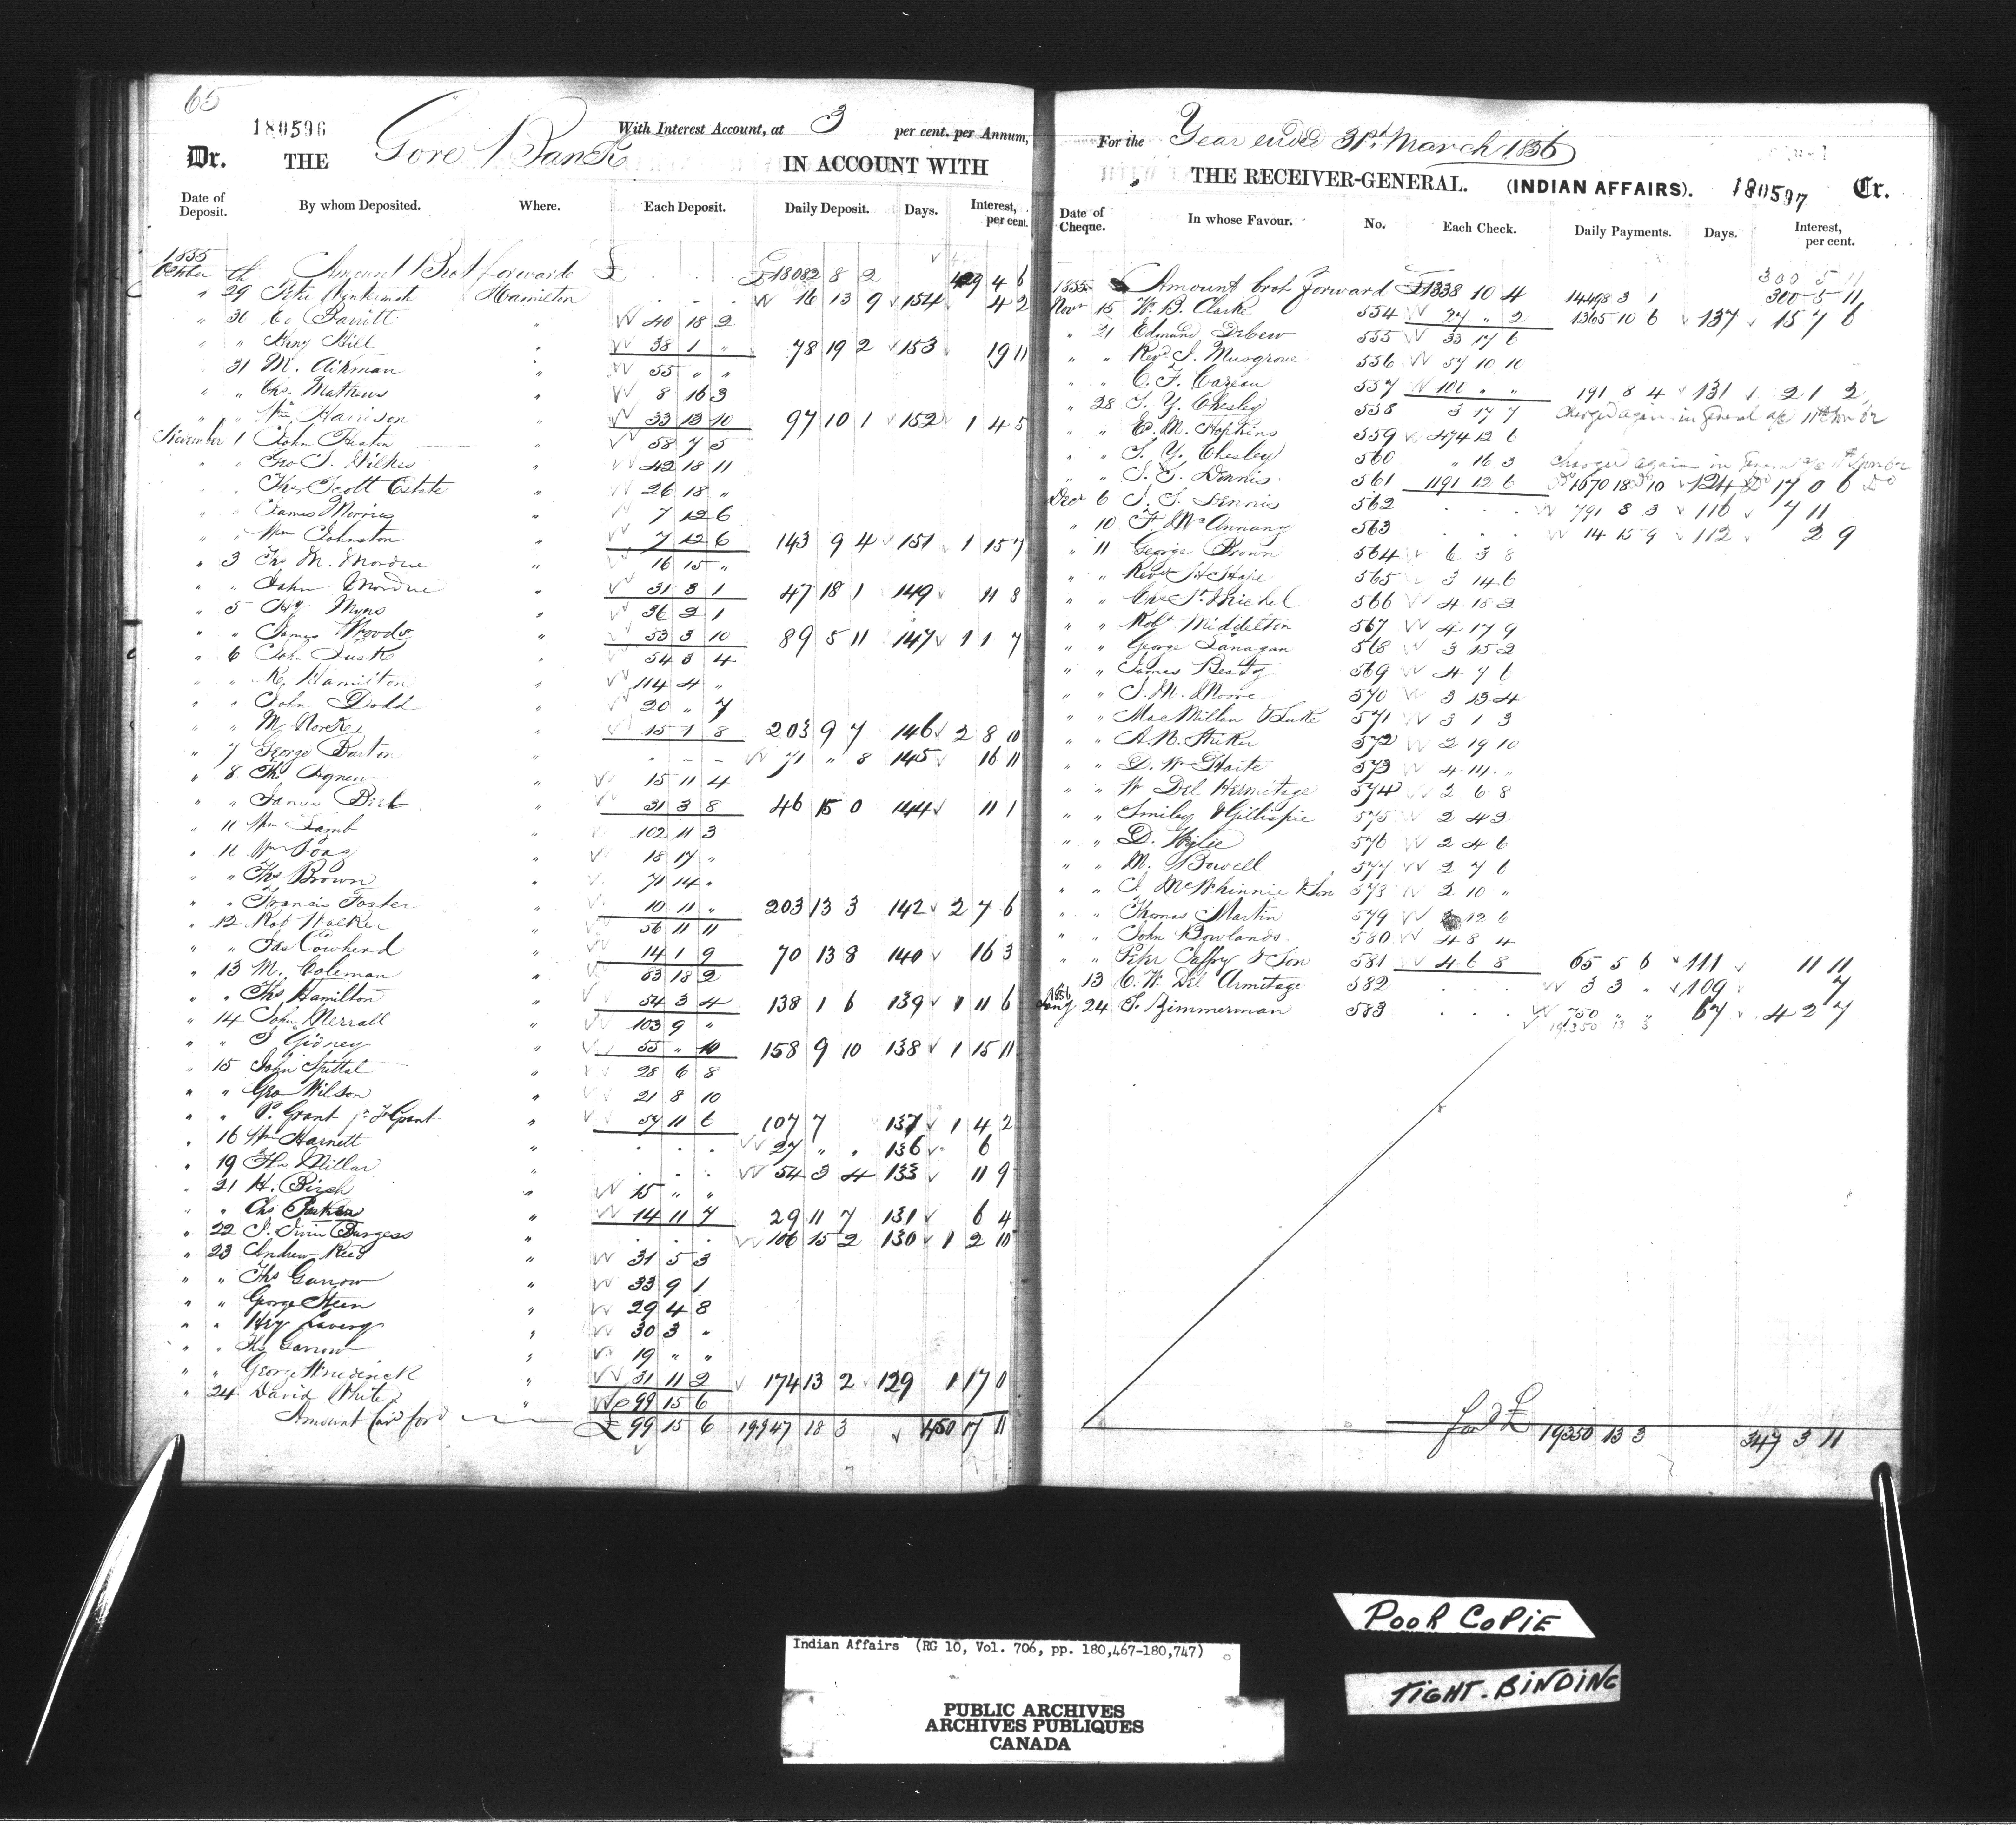 65
180596
With Interest Account, at 3 per cent. per Annum,
Dr. THE Gore Bank IN ACCOUNT WITH
Date of Deposit. By whom Deposited. Where. Each Deposit. Daily Deposit. Days. Interest, per cent.
1855
Amount Brot forwards £ . . . £18082 8 2 429 4 6
" 29 Hamilton . . . 16 13 9 154 4 2
" 30 Barritt " 40 18 2
" " Heny Hill " 38 1 " 78 19 2 153 19 11
31 M. Aikman " 55 " "
" " Chs. Mathews " 8 16 3
" " Wm Harrison " 33 13 10 97 10 1 152 1 4 5
November 1 John " 58 7 5
" " Geo S. Wilkes " 42 18 11
" " Thos Scott Estate " 26 18 "
" " James Morris " 7 12 6
" " Wm Johnston " 7 12 6 143 9 4 151 1 15 7
" 3 Ths M. Mordue " 16 15 "
" " John Mordue " 31 3 1 47 18 1 149 11 8
" 5 Hy " 36 2 1
" " James Woods " 53 3 10 89 5 11 147 1 1 7
" 6 John Lusk " 54 3 4
" " R. Hamilton " 114 4 "
" " John Dodd " 20 " 7
" " M. " 15 1 8 203 9 7 146 2 8 10
" 7 George Barton " - - - 71 " 8 145 16 11
" 8 Ths Agnew " 15 11 4
" " James " 31 3 8 46 15 0 144 11 1
" 11 Wm Lamb " 102 11 3
" 11 Wm " 18 17 "
" " Ths Brown " 71 14 "
" " Francis Foster " 10 11 " 203 13 3 142 2 7 6
" 12 Rob Walker " 56 11 11
" " Jas Cowherd " 14 1 9 70 13 8 140 16 3
" 13 M. Coleman " 83 18 2
" " Ths Hamilton " 54 3 4 138 1 6 139 1 11 6
" 14 John Merrall " 103 9 "
" " J. Gidney " 55 " 10 158 9 10 138 1 15 11
" 15 John Spittal " 28 6 8
" " Geo Wilson " 21 8 10
" " P. Grant Grant " 57 11 6 107 7 137 1 4 2
" 16 Wm Harnett " . . . 27 " " 136 6
" 19 Ths Millar " . . . 54 3 4 133 11 9
" 21 H. Birch " 15 " "
" " Chs " 14 11 7 29 11 7 131 6 4
" 22 J. Burgess " . . . 106 15 2 130 1 2 10
" 23 Andrew Reed " 31 5 3
" " Ths Garrow " 33 9 1
" " George Steen " 29 4 8
" " Hy Lavery " 30 3 "
" " Ths Garrow " 19 " "
" " George " 31 11 2 174 13 2 129 1 17 0
" 24 David White " 99 15 6
Amount Card ford £ 99 15 6 19947 18 3 450 17 11
For the Year ended 31st March 1856
THE RECEIVER-GENERAL. (INDIAN AFFAIRS). 180597 Cr.
Date of Cheque. In whose Favour. No. Each Check. Daily Payments. Days. Interest, per cent.
300 5 11
1855 Amount brot forward £1338 10 4 14498 3 1 300 5 11
Novr 15 W. B. Clarke 554 27 " 2 1365 10 6 137 15 7 6
" 21 Edmund 555 33 17 6
" " Revd. J. Musgrove 556 57 10 10
" " C. F. 557 100 " " 191 8 4 131 2 1 2
" 28 S. Y. Chesley 558 3 17 7 Charged again in General a/c 11th
" " E. M. Hopkins 559 474 12 6
" " S. Y. Chesley 560 " 16 3 Charged again in General a/c
" " J. S. Dennis 561 1191 12 6 1670 18 10 124 17 0 6
Decr 6 J. S. Dennis 562 . . . 791 8 3 116 7 11
" 10 F. McAnnany 563 . . . 14 15 9 112 2 9
" 11 George Brown 564 6 3 8
" " Revd H Hope 565 3 14 6
" " St. Michel 566 4 18 2
" " Robt Middleton 567 4 17 9
" " George Lanagan 568 3 15 2
" " James Beaty 569 4 7 6
" " J. M. Moore 570 3 13 4
" " MacMillan & Luke 571 3 1 3
" " A. N. Striker 572 2 19 10
" " D. W. 573 4 14 "
" " W Del Hermitage 574 2 6 8
" " Smiley & Gillispie 575 2 4 3
" " D. Wylie 576 2 4 6
" " M. Bowell 577 2 7 6
" " J. McWhinnie & Son 573 2 10 "
" " Thomas Martin 579 12 6
" " John Rowlands 580 4 8 4
" " Peter Caffry & Son 581 4 6 8 65 5 6 111 11 11
13 C. W. Del Armitage 582 . . . 3 3 " 109 7
1856
Jany 24 S. Zimmerman 583 . . . 750 " " 67 4 2 7
19,350 13 3
ford £ 19350 13 3 347 3 11
POOR COPIE
TIGHT-BINDING
Indian Affairs (RG 10, Vol. 706, pp. 180,467-180,747)
PUBLIC ARCHIVES
ARCHIVES PUBLIQUES
CANADA